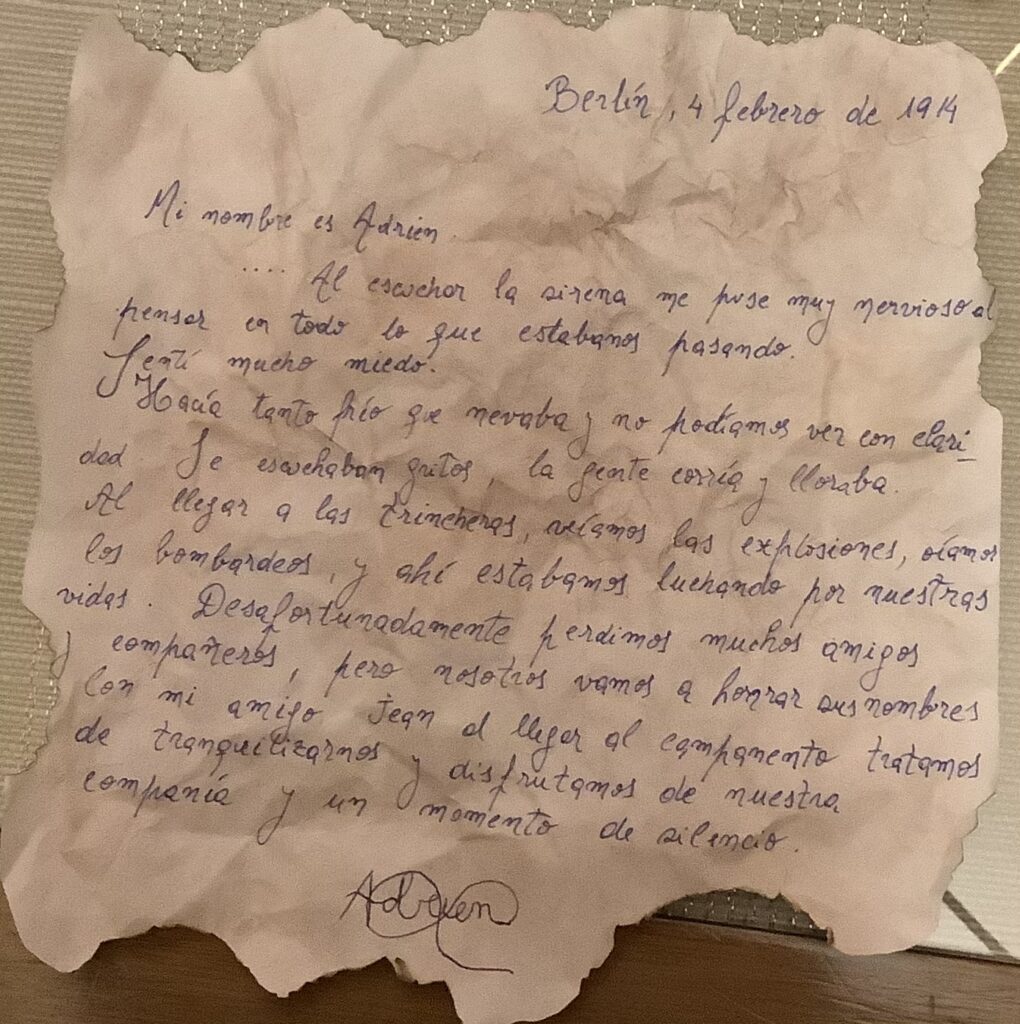 Berlín, 4 febrero de 1914
Mi nombre es Adrien.
.... Al escuchar la sirena me puse muy nervioso al
pensar en todo lo que estabamos pasando.
Sentí mucho miedo.
Hacía tanto frío que nevaba y no podíamos ver con clari_
dad. Se escuchaban gritos, la gente corría y lloraba.
Al llegar a las trincheras, veíamos las explosiones, oíamos
los bombardeos, y ahí estabamos luchando por nuestras
vidas. Desafortunadamente perdimos muchos amigos
y compañeros, pero nosotros vamos a honrar sus nombres
Con mi amigo Jean al llegar al campamento tratamos
de tranquilizarnos y disfrutamos de nuestra
compañía y un momento de silencio.
Adrien